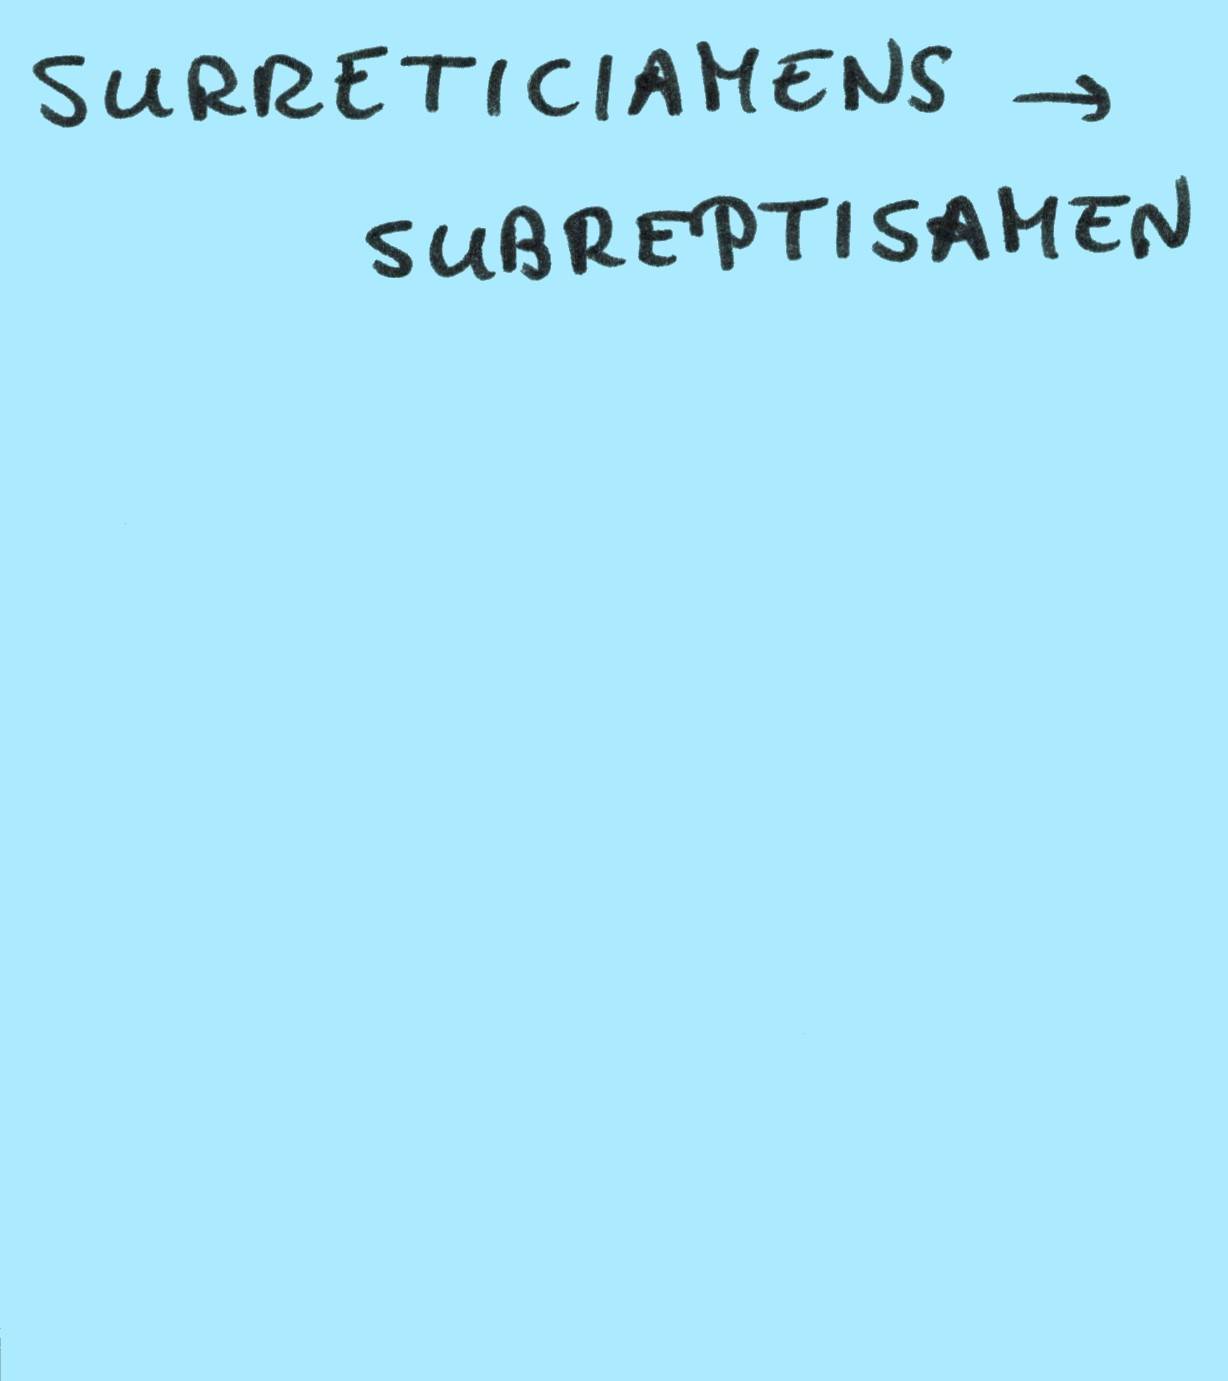 SURRETICIAMENS →
SUBREPTISAMEN